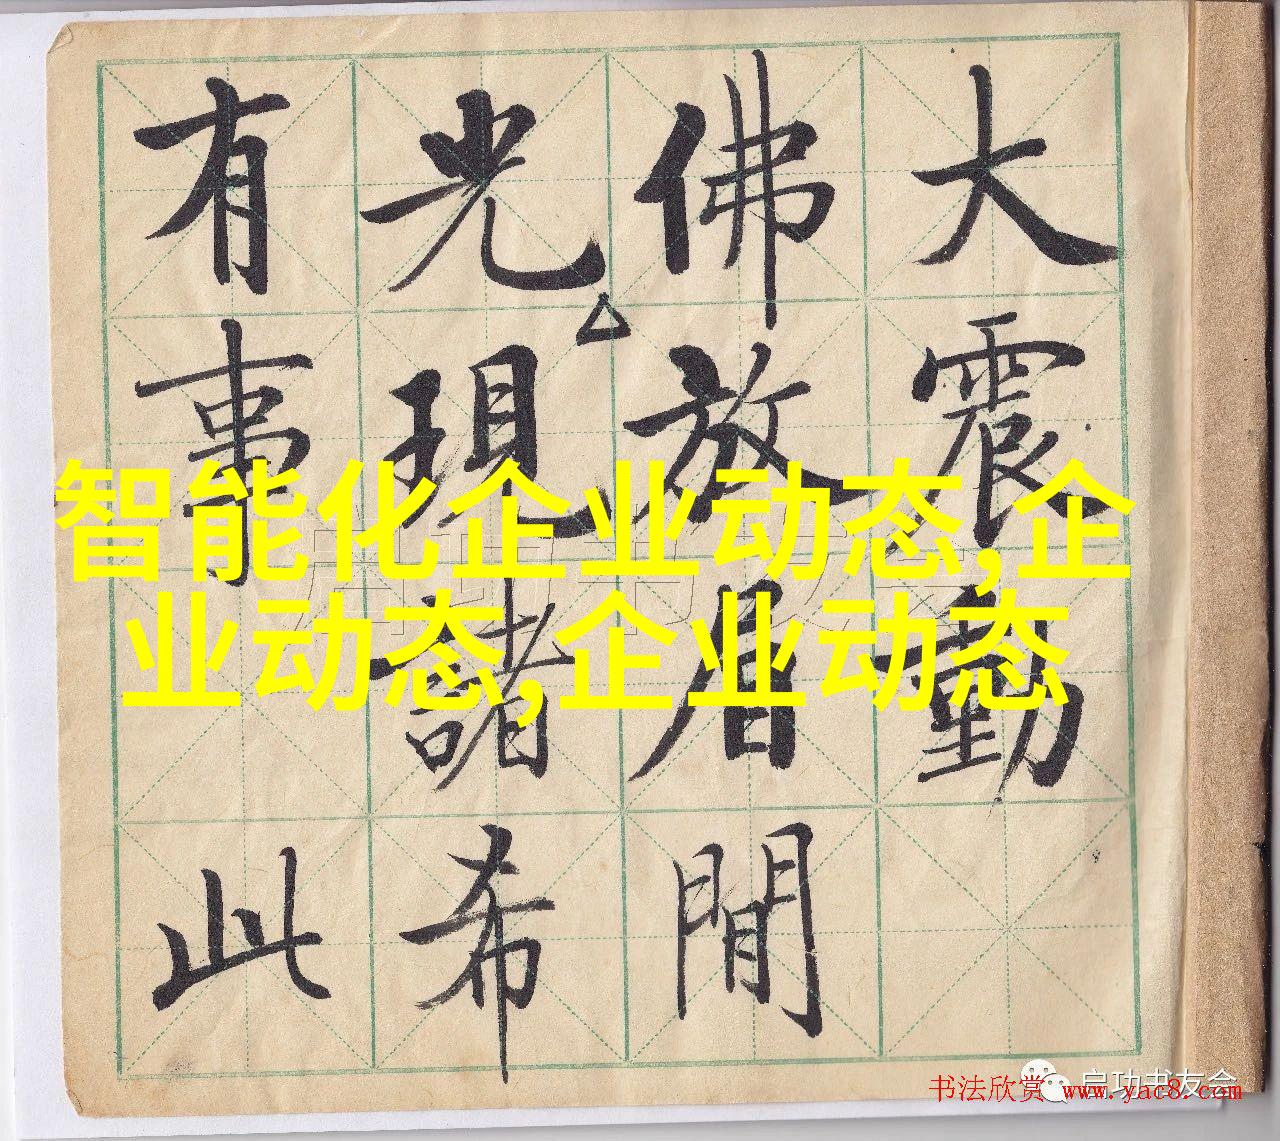 大震動
佛放眉間
光現諸希
有事此
智能化企业动态,企
业动态,企业动态
启功书友会
书法欣赏 www.yac8.com